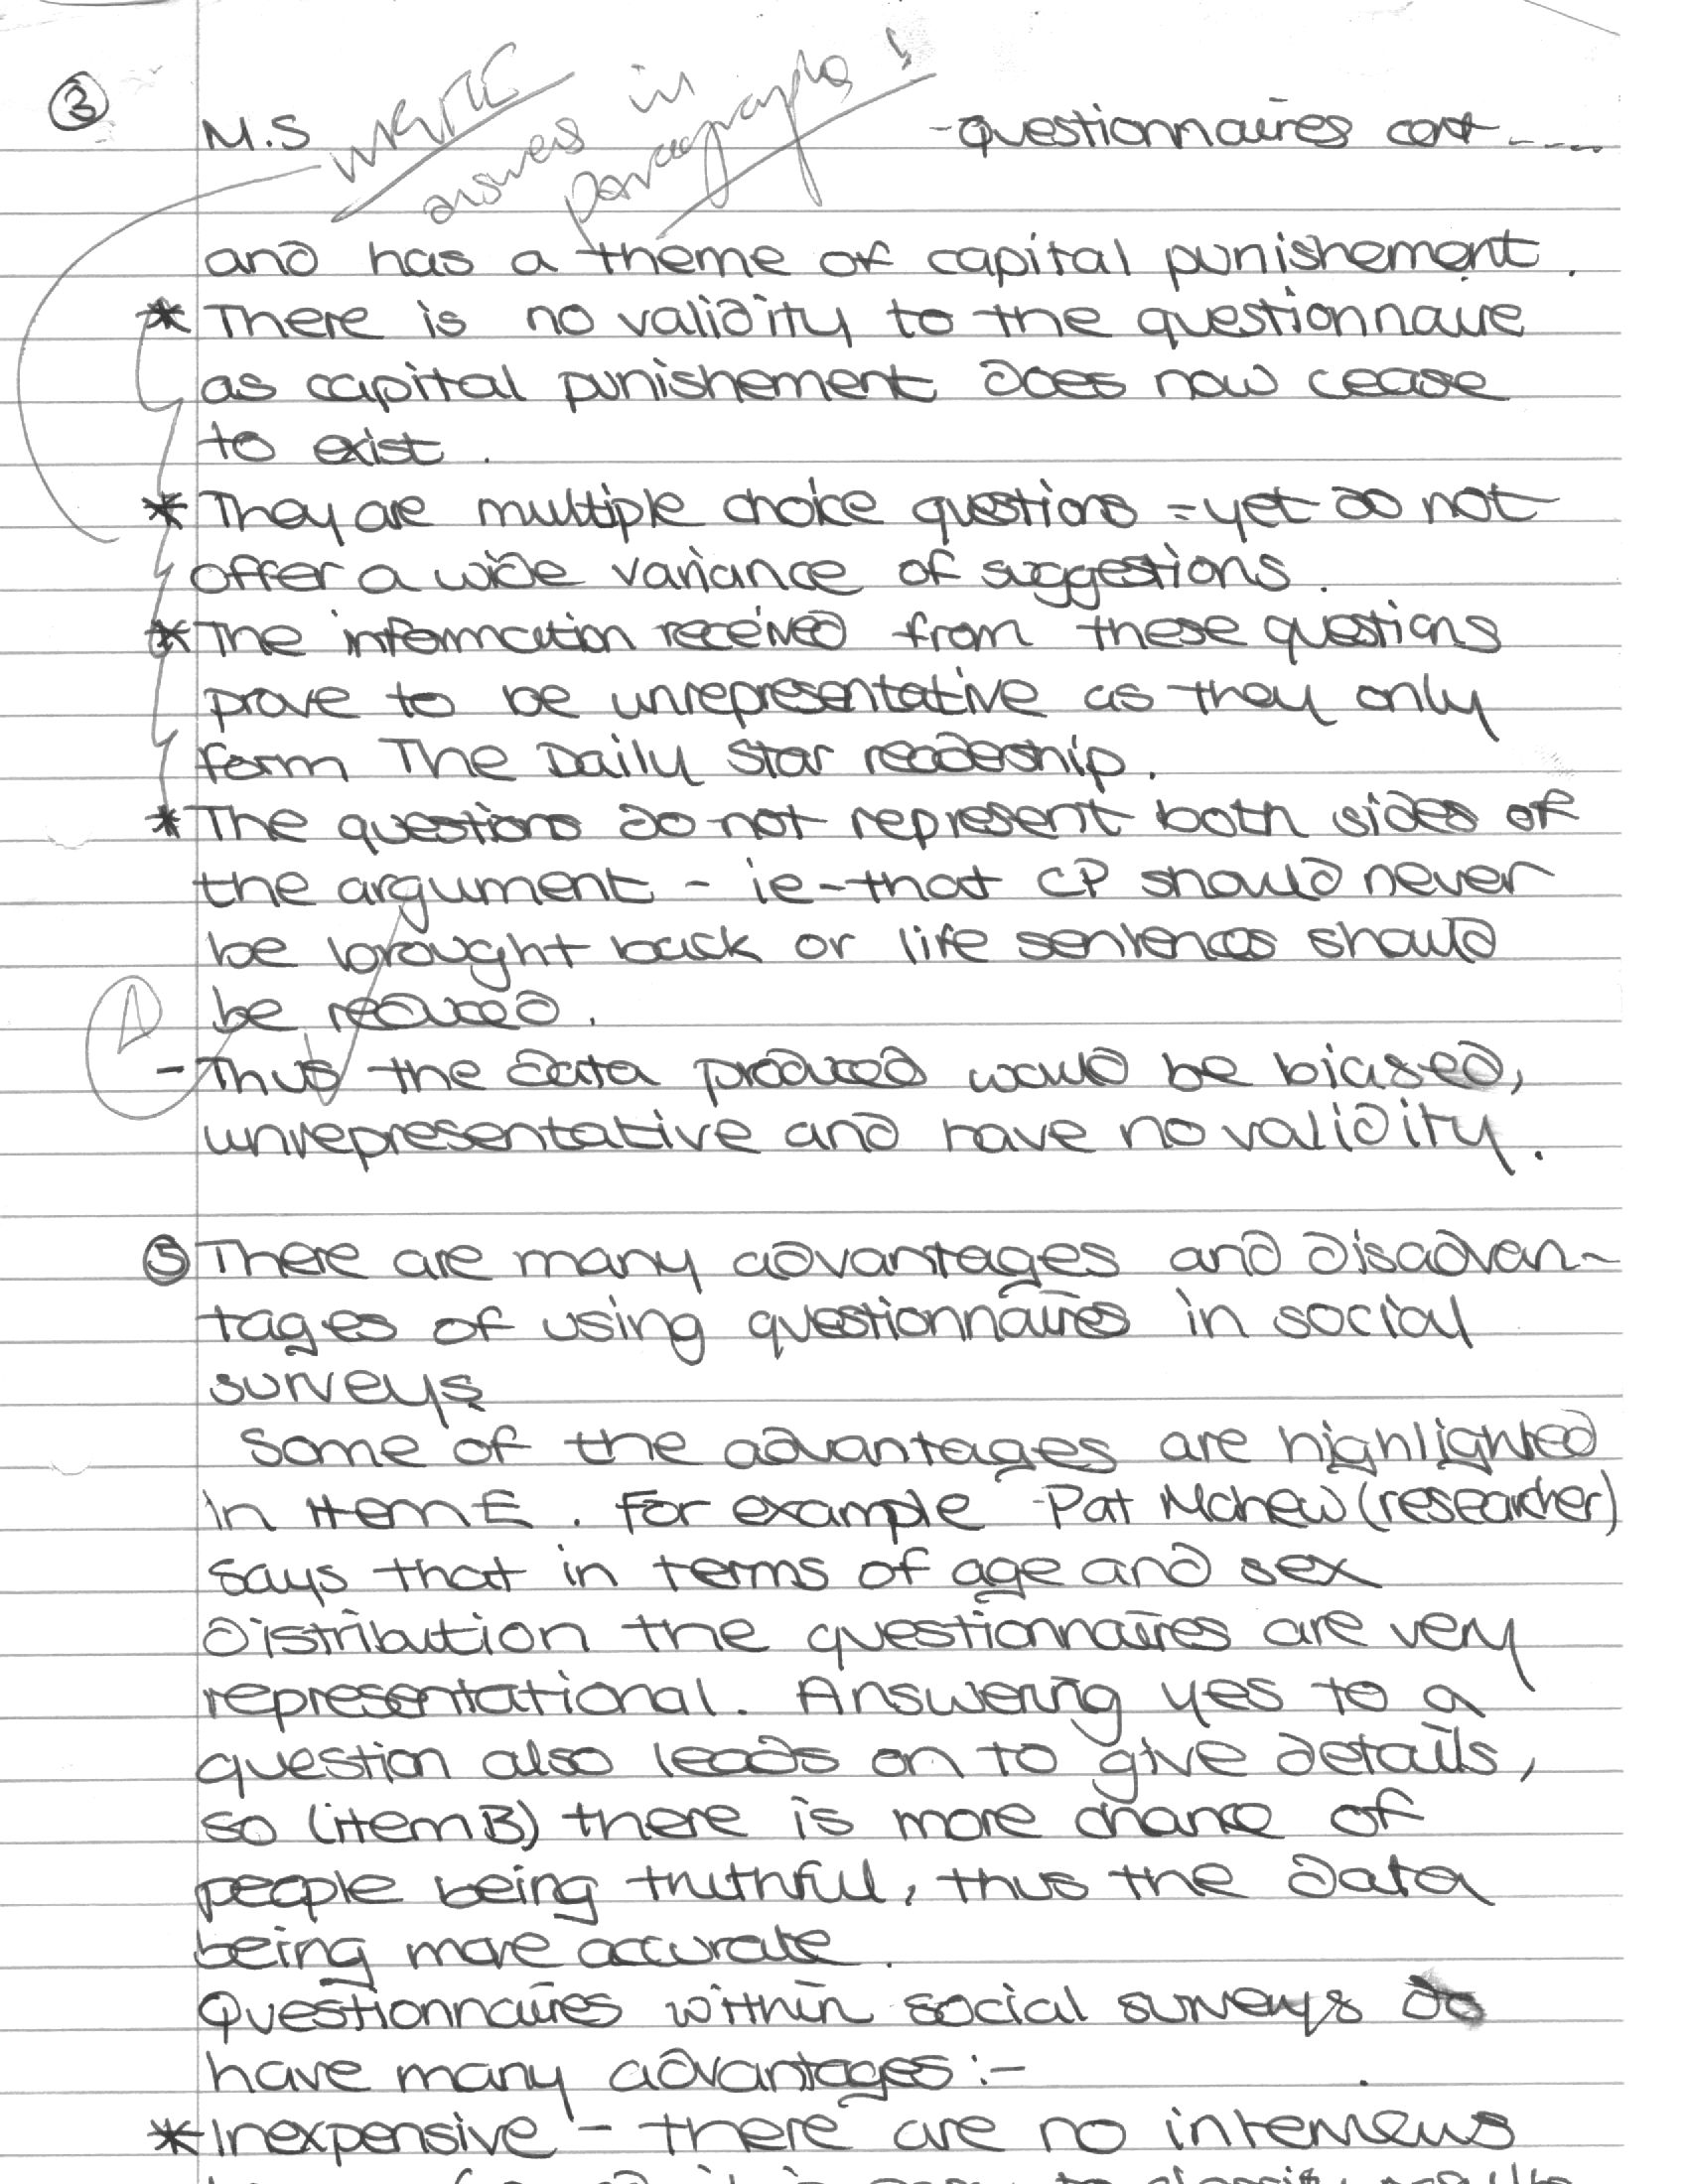 3
M.S
WRITE
answers in
paragraphs!
-questionnaires cont ----
and has a theme of capital punishement.
* There is no validity to the questionnaire
as capital punishement does now cease
to exist.
* They are multiple choice questions - yet do not
offer a wide variance of suggestions.
* The information received from these questions
prove to be unrepresentative as they only
form The Daily Star readership.
* The questions do not represent both sides of
the argument - ie - that CP should never
be brought back or life sentences should
be reduced.
- Thus the data produced would be biased,
unrepresentative and have no validity.
5 There are many advantages and disadvan-
tages of using questionnaires in social
surveys
Some of the advantages are highlighted
in Item E. For example - Pat (researcher)
says that in terms of age and sex
distribution the questionnaires are very
representational. Answering yes to a
question also leads on to give details,
so (item B) there is more chance of
people being truthful, thus the data
being more accurate.
Questionnaires within social surveys do
have many advantages :-
* Inexpensive - there are no interviews